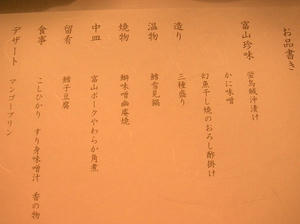 お品書き
富山珍味 蛍烏賊沖漬け
かに味噌
幻魚干し焼のおろし酢掛け
造り 三種盛り
温物 鱈雪見鍋
焼物 鰤味噌幽庵焼
中皿 富山ポークやわらか角煮
留肴 鱈子豆腐
食事 こしひかり すり身味噌汁 香の物
デザート マンゴープリン